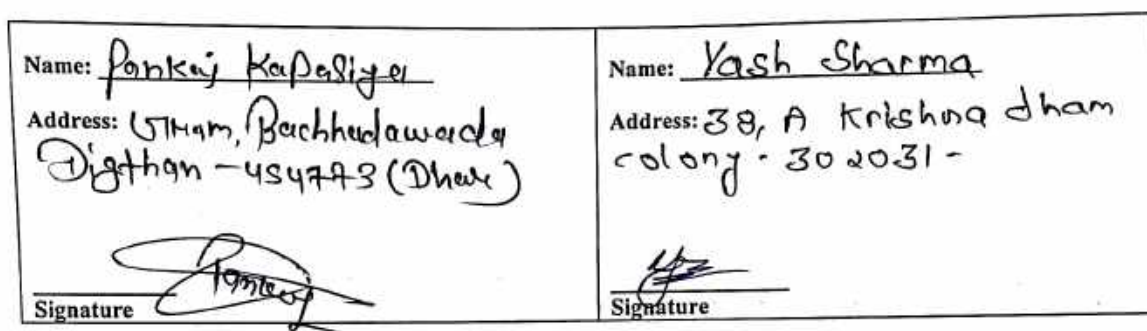 Name: Pankaj Kapasiya
Address: Gram, Bachhadawada
Digthan - 454773 (Dhar)
Pankaj
Signature
Name: Yash Sharma
Address: 38, A Krishna dham
colony - 302031 -
Signature